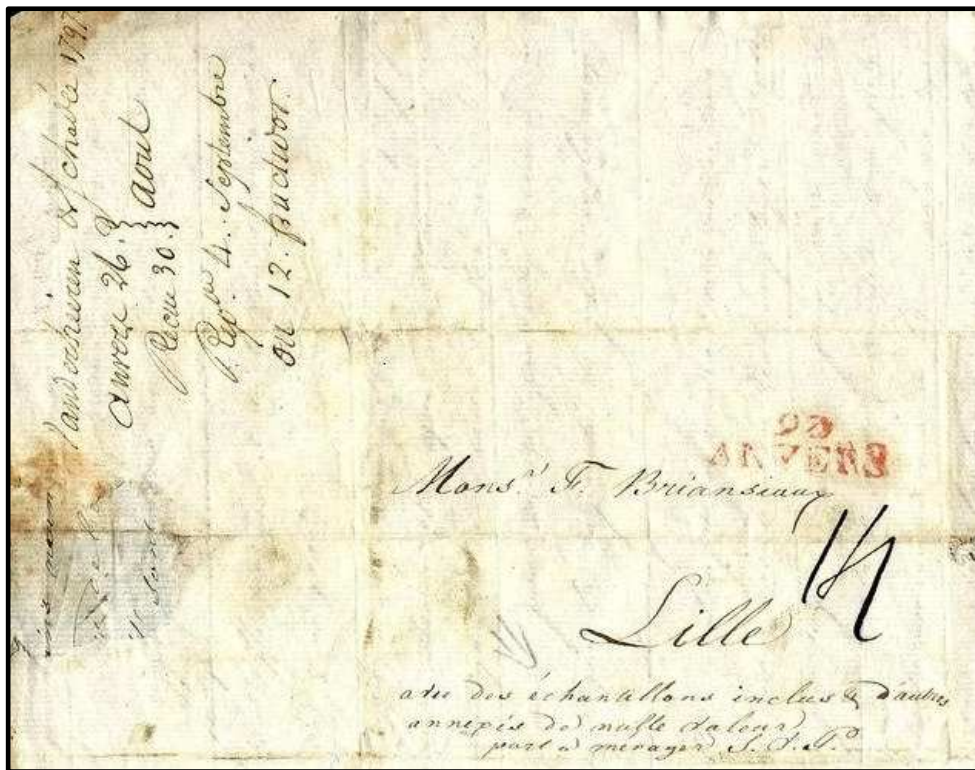 & chavée 1797
Anvers 26.
Recue 30. } aout
Rep. 4. Septembre
ou 12. fructidor.
93
ANVERS
Mons.r F. Briansiaux
Lille
avec des échantillons inclus & d'autres
annexés de nulle valeur
port a menager S. V. P.